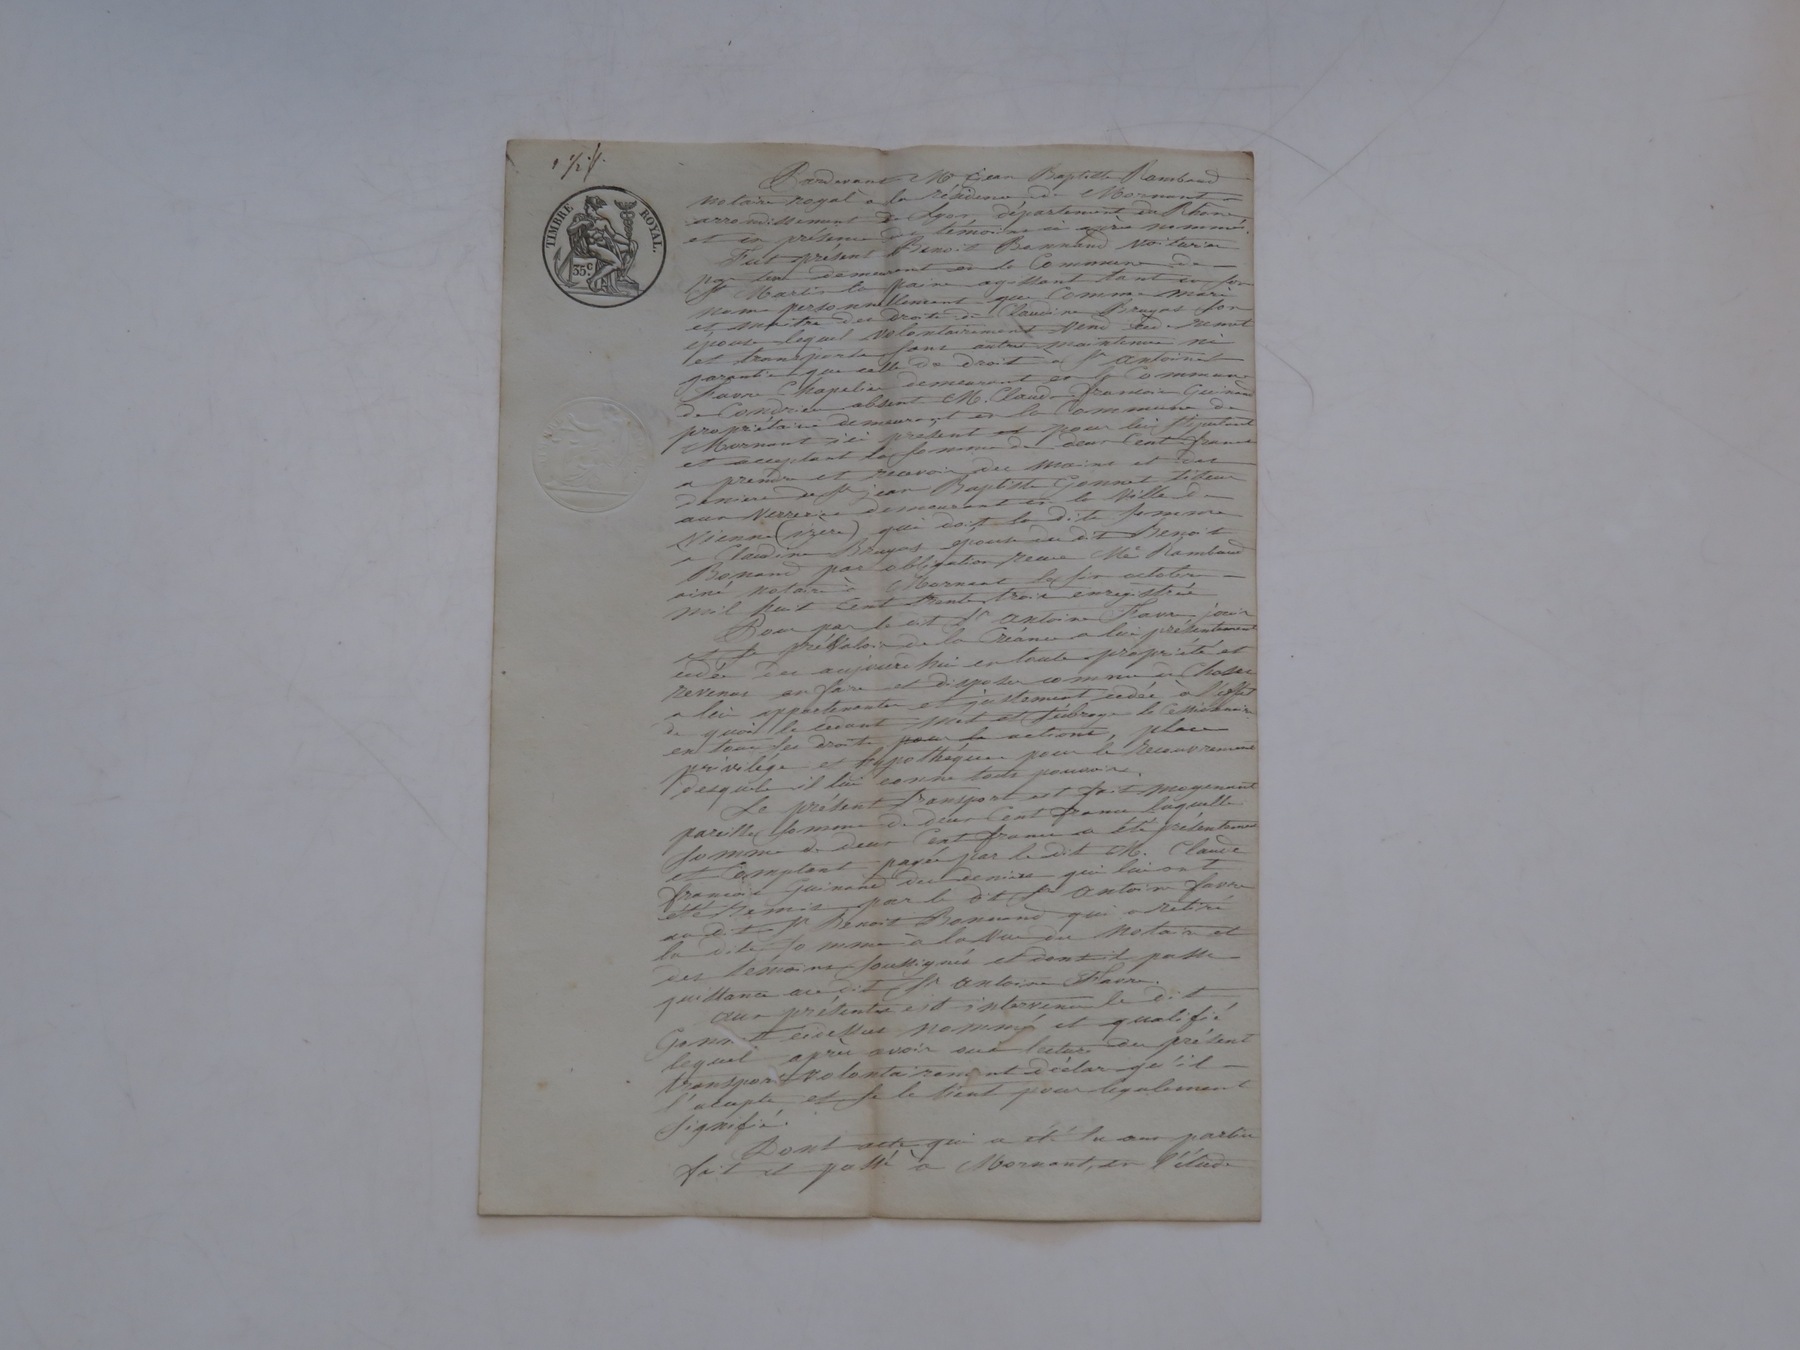 TIMBRE ROYAL.
35 c.
Pardevant Me Jean Baptiste Rambaud
notaire royal à la résidence de Mornant
arrondissement de Lyon département du Rhône
et en présence des témoins ci après nommés.
Fut présent Benoit Bonnand voiturier
par demeurant en la Commune de
St Martin la plaine agissant tant en son
nom personnellement que Comme mari
et maitre des droits de Claudine Bruyas son
épouse lequel volontairement vend cède remet
et transporte sans autre maintenue ni
garantie que celle de droit à Sr antoine
Favre Chapelier demeurant en la Commune
de Condrieu absent M. Claude françois Guinand
propriétaire demeurant en la Commune de
Mornant ici présent et pour lui Stipulant
et acceptant la Somme de deux Cent francs
a prendre et recevoir des mains et des
deniers de Sr jean Baptiste Gonnet tiseur
aux verreries demeurant en la Ville de
Vienne (isère) qui doit la dite Somme
a Claudine Bruyas épouse du dit Benoit
Bonand par obligation reçue Me Rambaud
ainé notaire à Mornant le six octobre
mil huit Cent trente trois enregistrée
Pour par le dit Sr antoine Favre jouir
et se prévaloir de la Créance a lui présentement
cédée des aujourdhui en toute propriété et
revenus en faire et disposer comme de Choses
a lui appartenantes et justement cédée à l'effet
de quoi le cédant met et Subroge le Cessionnaire
en tous ses droits pour le actions, place
privilége et hypothéques pour le recouvrement
desquels il lui donne tous pouvoirs.
Le présent transport est fait moyennant
pareille Somme de deux Cent francs laquelle
Somme de deux Cent francs a été présentement
et Comptant payée par le dit M. Claude
françois Guinand des deniers qui lui ont
été remis par le dit Sr antoine favre
au dit Sr Benoit Bonnand qui a retiré
la dite Somme à la Vue du Notaire et
des témoins soussignés et dont il passe
quittance au dit Sr antoine Favre.
aux présentes est intervenu le dit
Gonnet cidessus nommé et qualifié
lequel après avoir oui lecture du présent
transport volontairement déclare qu'il
l'accepte et se le tient pour légalement
signifié.
Dont acte qui a été lu aux parties
fait et passé à Mornant, en l'étude